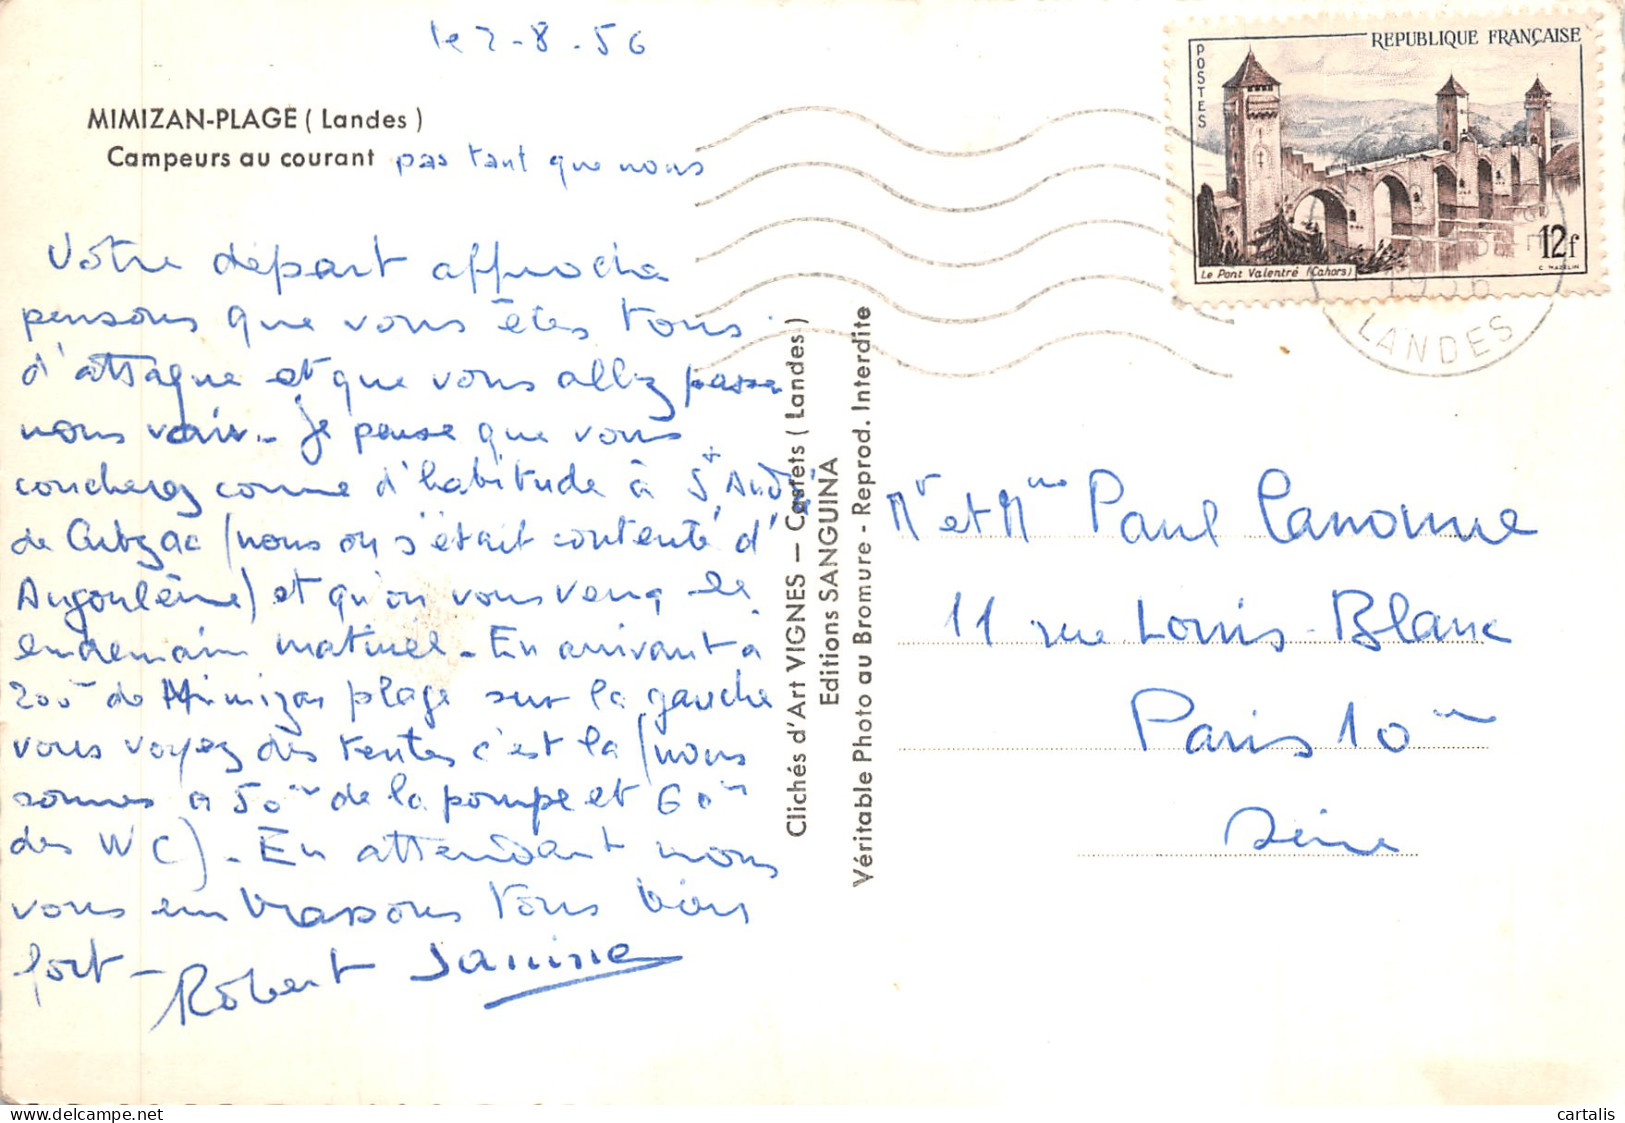 le 2-8.56
MIMIZAN-PLAGE ( Landes )
Campeurs au courant pas tant que nous
Votre départ approche
pensons que vous êtes tous
d'attaque et que vous allez passer
nous voir. Je pense que vous
coucherez comme d'habitude à St André
de Cubzac (nous on s'était contenté d'
Angoulême) et qu'on vous verra le
endemain matinée - En arrivant à
200m de Mimizan plage sur la gauche
vous voyez des tentes c'est là (nous
sommes à 50m de la pompe et 60m
des WC). En attendant nous
vous embrassons tous bien
fort -
Robert Janine
Clichés d'Art VIGNES — Castets ( Landes )
Editions SANGUINA
Véritable Photo au Bromure - Reprod. Interdite
POSTES
REPUBLIQUE FRANÇAISE
12f
Le Pont Valentré (Cahors)
C. MAZELIN
1956
LANDES
Mr et Mme Paul Canonne
11 rue Louis Blanc
Paris 10me
Seine
cartalis